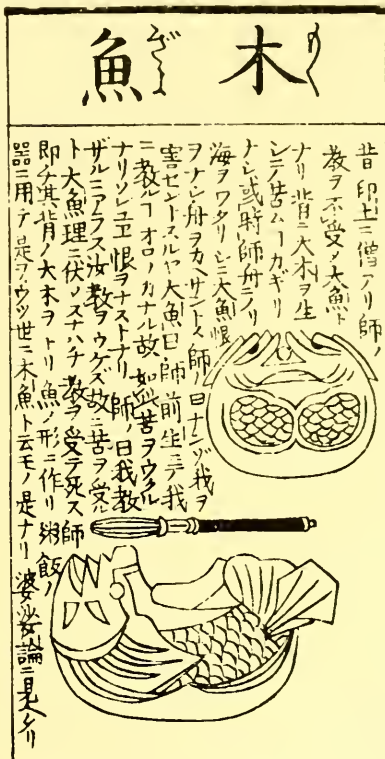 木魚
もく
ぎよ
昔印土ニ僧アリ師ノ
教ヲ不受メ大魚ト
ナリ背ニ大木ヲ生
シテ苦ムヿカギリ
ナシ或時師舟ニノリ
海ヲワタリシニ大魚恨
ヲナシ舟ヲカヘサントス師ノ曰ナンゾ我ヲ
害セントスルヤ大魚曰師前生ニテ我
ニ教ルヿオロソカナル故如此苦ヲウクル
ナリソレユヱ恨ヲナストナリ師ノ曰我教
ザルニアラズ汝教ヲウケズ故ニ苦ヲ受ル
ト大魚理ニ伏メスナハチ教ヲ受テ死ス師
即チ其背ノ大木ヲトリ魚ノ形ニ作リ粥飯ノ
器ニ用テ是ヲウツ世ニ木魚ト云モノ是ナリ婆娑論ニ見ヘタリ